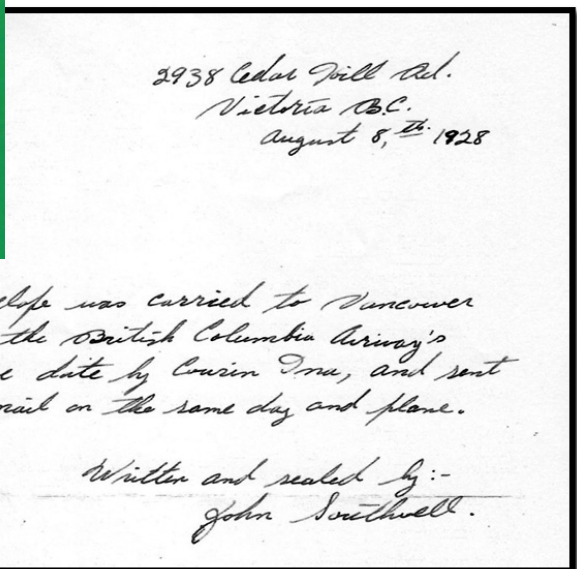 2938 Cedar Hill Rd.
Victoria B.C.
August 8,th. 1928
elope was carried to Vancouver
the British Columbia Airway's
e date by Cousin Ina, and sent
mail on the same day and plane.
Written and sealed by:-
John Southwell.